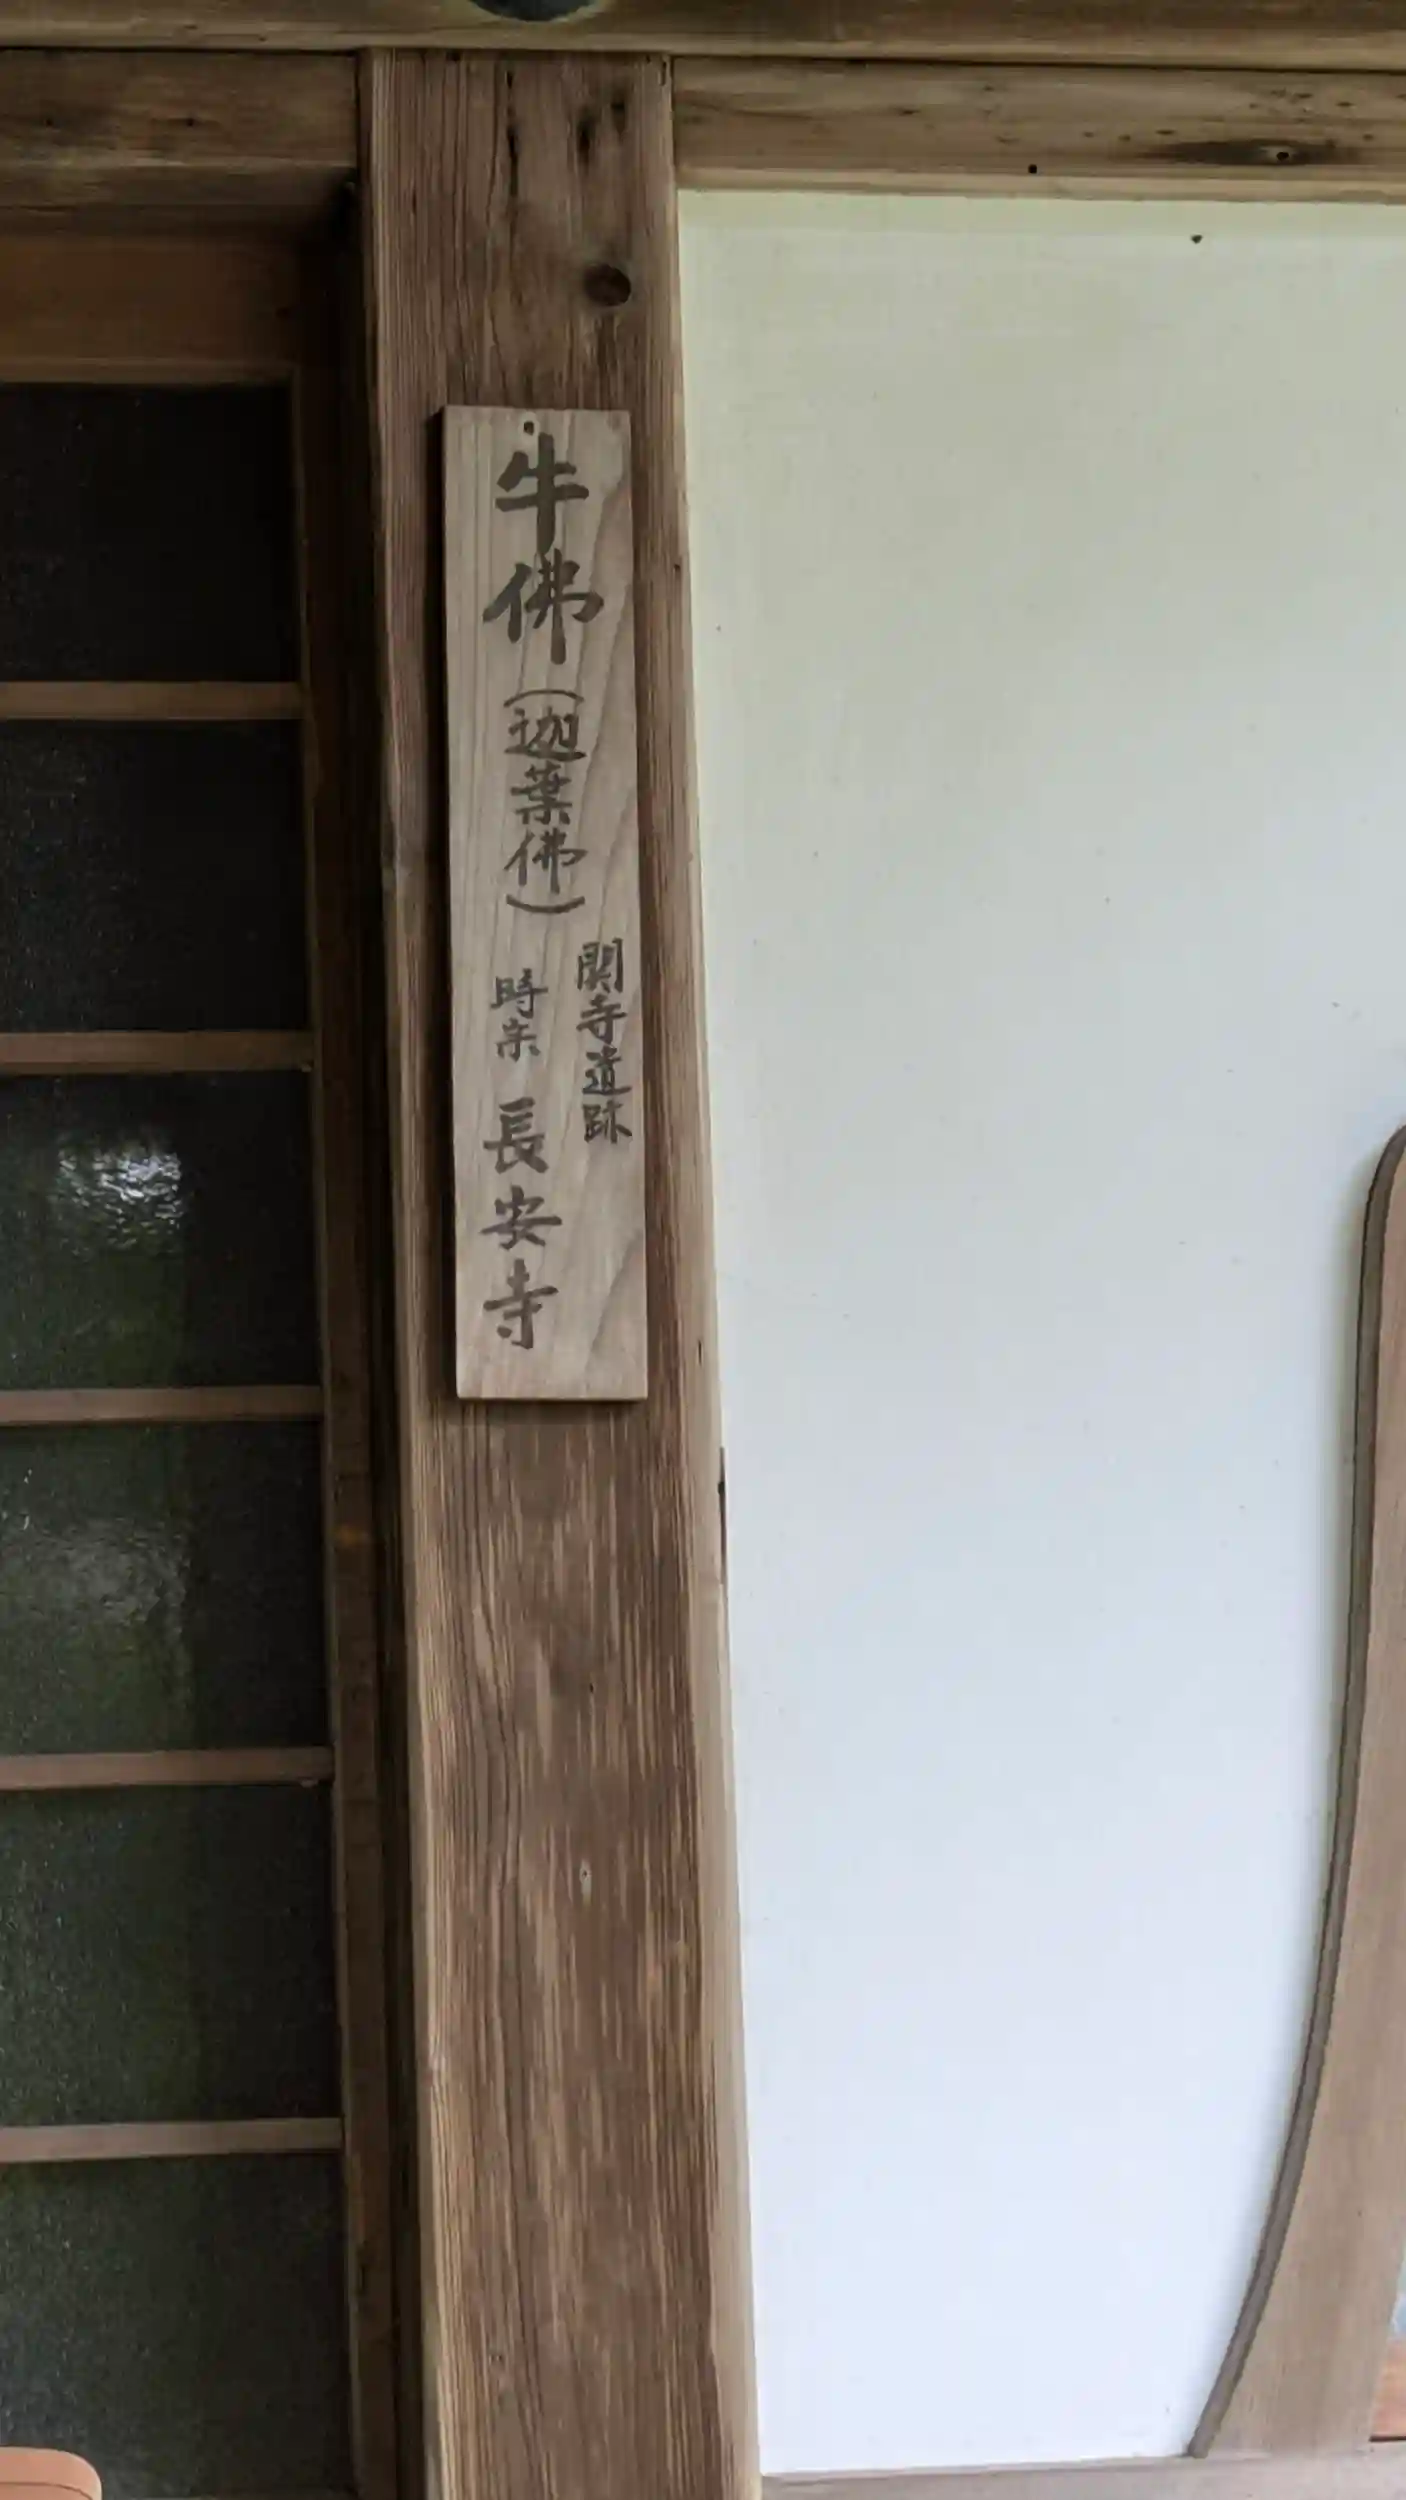 牛佛(迦葉佛)
関寺遺跡
時宗 長安寺